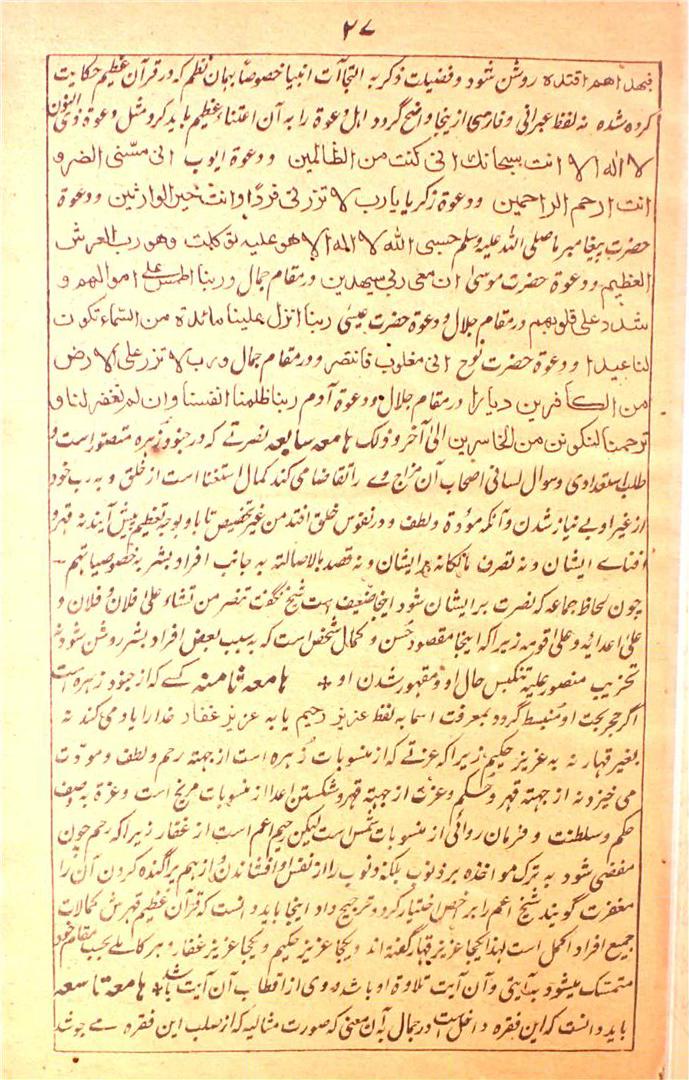 ۲۷
فبهداهم اقتده روشن شود و فضیات ذکر به التجاآت انبیا خصوصاً بهمان نظم که در قرآن عظیم حکایت
کرده شده نه لفظ عبرانی و فارسی ازینجا واضح گردد اہل دعوة را به آن اعتناء عظیم باید کرد و مثل دعوة ذی النون
لا اله الا انت سبحانك انی کنت من الظالمین و دعوة ایوب انی مسّنی الضر و
انت ارحم الراحمین و دعوة زکریا یا رب لا تذرنی فرداً و انت خیر الوارثین و دعوة
حضرت پیغامبر ما صلی اللہ علیہ وسلم حسبی اللّٰه لا اله الا هو علیه توکلت وهو رب العرش
العظیم و دعوة حضرت موسیٰ ان معی ربی سیهدین در مقام جمال و ربنا اطمس علی اموالهم و
شدد علی قلوبهم در مقام جلال و دعوة حضرت عیسی ربنا انزل علینا مائدة من السّماء تکون
لنا عیدا و دعوة حضرت نوح انی مغلوب فانتصر و در مقام جمال و رب لا تزر علی الارض
من الکافرین دیارا در مقام جلال و دعوة آدم ربنا ظلمنا انفسنا و ان لم تغفر لنا و
ترحمنا لنکونن من الخاسرین الی آخر و ذلک هامعه سابعه نصرتے که در جنود زهره متصور است و
طلب استعدادی و سوال لسانی اصحاب آن مزاج وے را تقاضا می کند کمال استغنا است از خلق و به رب خود
از غیر او بے نیاز شدن و آنکه مودّة و لطف و در نفوس خلق افتد من غیر تخصیص تا با و بوجه تعظیم پیش آیند نه قهر و
افناے ایشان و نه تصرف مالکانه در ایشان و نه قصد بالاصالته به جانب افراد بشر به خصوصیاتهم
چون لحاظ جماعه که نصرت بر ایشان شود اینجا ضعیف است شیخ نگفت تنصر من تشاء علی فلان و فلان و
علی اعدائه و علی اقومه زیرا که اینجا مقصود حسن و کمال شخص است که به سبب بعض افراد بشر روشن شود نه
تخریب منصور علیه تنکیس حال او و مقهور شدن او + هامعه ثامنه کسے که از جنود زهره است
اگر حجر بحت او منبسط گردد بمعرفت اسما به لفظ عزیز رحیم یا به عزیز غفار خدا را یاد می کند نه
بغیر قهار نه به عزیز حکیم زیرا که عزتے که از منسوبات زهره است از جهته رحم و لطف و مودّت
می خیزد نه از جهته قهر و حکم و عزّت از جهته قهر و شکستن اعدا از منسوبات مریخ است و عزة به وصف
حکم و سلطنت و فرمان روائی از منسوبات شمس ست لیکن رحیم اعم است از غفار زیرا که رحم چون
مفضی شود به ترک مواخذه بر ذنوب بلکه ذنوب را از نفس او افشاندن و از هم پراگنده کردن آن را
مغفرت گویند شیخ اعم را بر اخص اختیار کرد و ترجیح داد اینجا باید دانست که قرآن عظیم فهرس کمالات
جمیع افراد اکمل است لهذا یکجا عزیز قهار گفته اند و یکجا عزیز حکیم و یکجا عزیز غفار و هر کاملے بحسب مقام خود
متمسک میشود به آیتی و آن آیت تلاوة او باشد و وی از اقطاب آن آیت باشد * هامعه تاسعه
باید دانست که این فقره داخل است در جمال به آن معنی که صورت مثالیه که از صلب این فقره مے جوشد